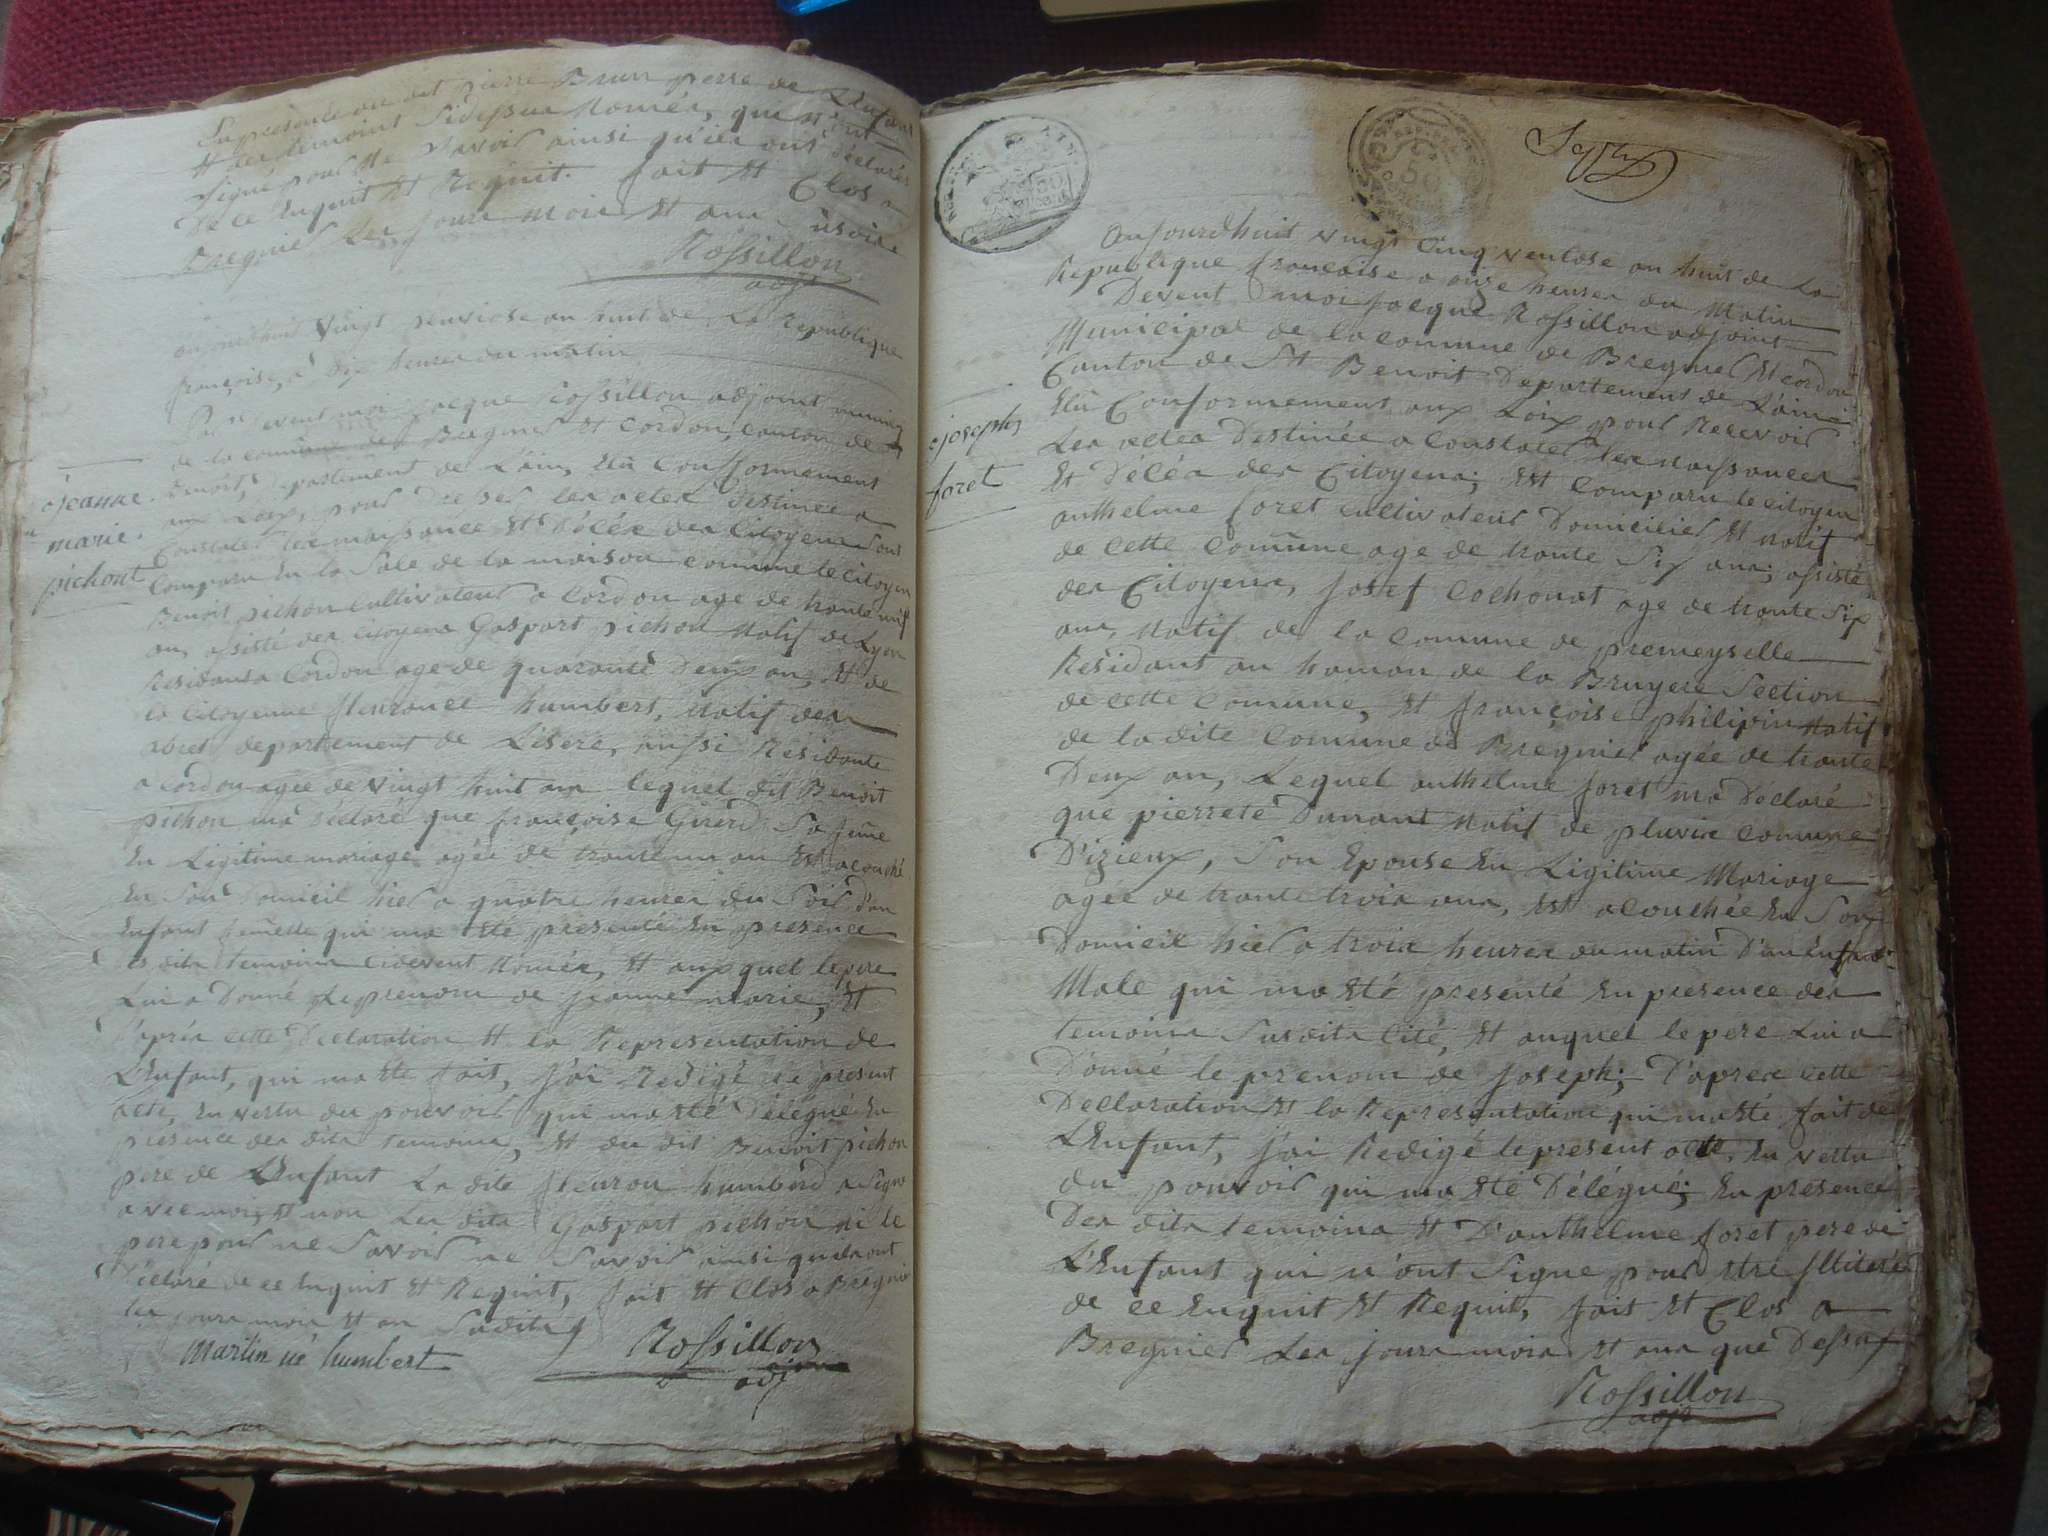 La presente au dit pierre Brun perre de L'Enfant
Et les temoins sidessus només, qui n'ont
signé pour ne savoir ainsi qu'ils ont déclarés
De ce Enquit Et Requit. fait Et Clos a
Bregnier Les Jours mois Et ans susdits
Rossillon
adjt
aujourdhuit Vingt pluviose an huit de La Republique
françoise, à dix heures du matin
Par devent moi Jacque Rossillon adjoint municip
de la commune de Bregnier Et Cordon, canton de St
Benoit, Departement de L'ain, Elû Conformement
aux Loix, pour Dresser les actes destinés a
Constater les naissances Et Décés des Citoyens sont
Comparu En la Sale de la maison comune le citoyen
Benoit pichon cultivateur a Cordon age de trante neuf
an, assisté des citoyens Gaspart pichon Natif de Lyon
Residant a Cordon age de quarante Deux an, Et de
la Citoyenne fleurance humbert, Natif des
abret departement de Lisere, aussi Residante
a Cordon agée de vingt huit ans lequel dit Benoit
pichon ma déclaré que françoise Girerd Sa femme
En Ligitime mariage agée de trante un an Est acouché
En Son Domicil hier a quatre heures du Soir d'un
Enfant femelle qui ma été presenté En presence
des dits temoins cidevent Només, Et auxquel le pere
Lui a Donné Le prenom de jeanne marie, Et
D'aprés cette Declaration Et la Representation de
L'Enfant, qui ma Eté fait, J'ai Redigé le present
acte, En vertu du pouvoir qui ma Eté Délégué En
presence des dits temoins, Et du dit Benoit pichon
pere de L'Enfant La dite fleuron humberd a Signé
avec moi, Et non Les dits Gaspart pichon ni le
pere pour ne Savoir ne Savoir ainsi qu'ils ont
Declaré de ce Enquit Et Requit, fait Et Clos a Bregnier
les jours mois Et an Sudits
Martin né humbert
Rossillon
adj
jeanne
marie
pichont
Aujourdhuit vingt Cinq ventose an huit de La
Republique françoise a onze heures du Matin
Devent moi Jacque Rossillon adjoint
Municipal de la commune de Bregnier Et Cordon
Canton de St Benoit Departement de L'ain
Elû Conformement aux Loix pour Recevoir
Les actes Destinés a Constater les Naissances
Et Décés des Citoyens; Est Comparu le citoyen
anthelme foret cultivateur Domicilier Et natif
de cette Comune age de trante Six ans; assisté
des Citoyens, Josef Cochonat age de trante Six
ans, Natif de la Comune de premeyselle
Residant au hamau de la Bruyere Section
de cette Comune, Et françoise philipin Natif
de la dite Comune de Bregnier agée de trante
Deux an, Lequel anthelme foret ma Declaré
que pierrete Dunant Natif de pluvis comune
D'izieux, Son Epouse En Ligitime Mariage
agée de trante trois ans, Est acouchée En Son
Domicil hier a trois heures du matin D'un Enfant
Male qui ma Eté presenté En presence des
temoins Susdits Cité, Et auquel le pere Lui a
Donné le prenom de Joseph; D'apres cette
Declaration Et la Representation qui ma Eté fait de
L'Enfant, J'ai Redigé le present acte, En vertu
du pouvoir qui ma Eté Délégué; En presence
Des dits temoins Et D'anthelme foret pere de
L'Enfant qui n'ont Signe pour Etre Illiteré
de ce Enquit Et Requit, fait Et Clos a
Bregnier Les jours mois Et ans que Dessus
Rossillon
adjt
joseph
foret